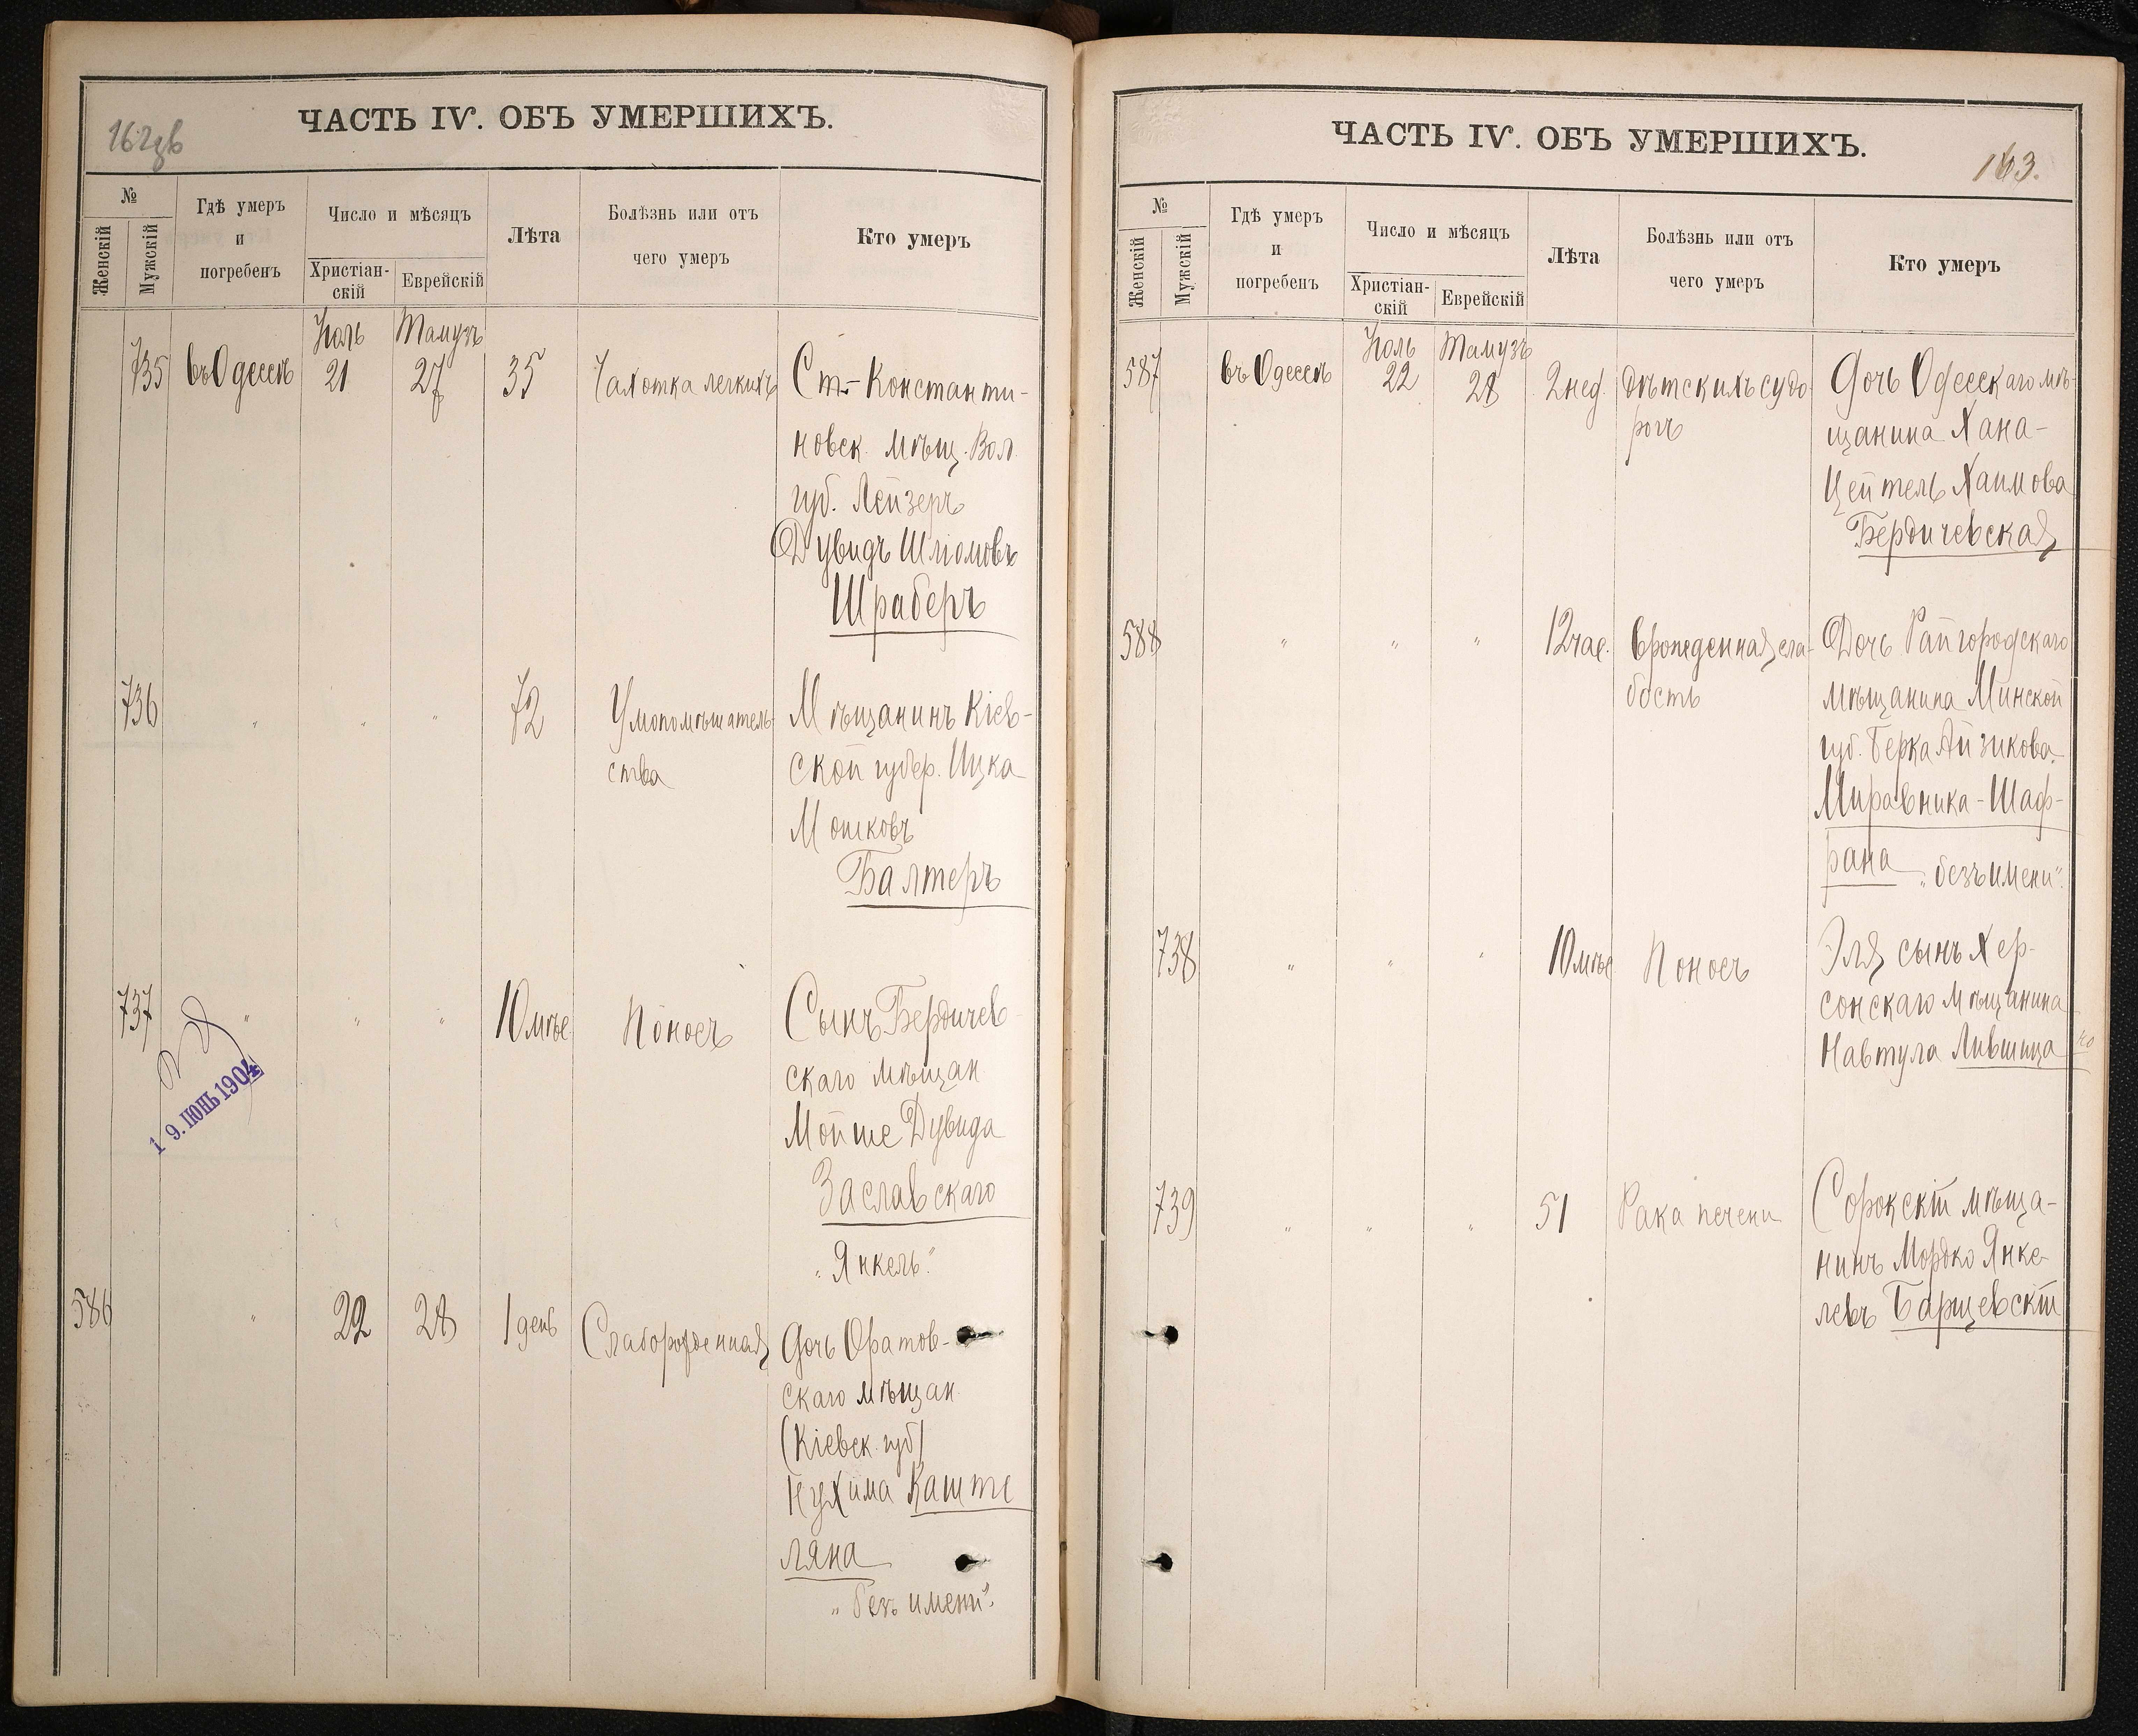 162 об
ЧАСТЬ IV. ОБЪ УМЕРШИХЪ.
№
Женскій
Мужскій
Гдѣ умеръ
и
погребенъ
Число и мѣсяцъ
Христіан-
скій
Еврейскій
Лѣта
Болѣзнь или отъ
чего умеръ
Кто умеръ
Іюль Тамузъ
735 въ Одессѣ 21 27 35 Чахотка легкихъ Ст.-Константи-
новск. мѣщ. Вол.
губ. Лейзеръ
Дувидъ Шліомовъ
Шраберъ
736 " " " 72 Умопомѣшатель-
ства
Мѣщанинъ Кіев-
ской губер. Ицка
Мошковъ
Балтеръ
737 " " " 10 мѣс Поносъ Сынъ Бердичев-
скаго мѣщан
Мойше Дувида
Заславскаго
"Янкель".
19. ІЮНЬ 1904
586 " 22 28 1 день Слаборожденная Дочь Оратов-
скаго мѣщан.
(Кіевск. губ)
Нухима Каште
ляна
"безъ имени".
ЧАСТЬ IV. ОБЪ УМЕРШИХЪ.
163.
№
Женскій
Мужскій
Гдѣ умеръ
и
погребенъ
Число и мѣсяцъ
Христіан-
скій
Еврейскій
Лѣта
Болѣзнь или отъ
чего умеръ
Кто умеръ
Іюль Тамузъ
587 въ Одессѣ 22 28 2 нед. Дѣтскихъ судо-
рогъ
Дочь Одесскаго мѣ-
щанина Хана-
Цейтель Хаимова
Бердичевская
588 " " " 12 час. Врожденная сла-
бость
Дочь Райгородскаго
мѣщанина Минской
губ. Берка Айзикова
Миравника-Шаф-
рана "безъ имени".
738 " " " 10 мѣс Поносъ Эля сынъ Хер-
сонскаго мѣщанина
Навтула Лившица
739 " " " 51 Рака печени Сорокскій мѣща-
нинъ Мордко Янке-
левъ Барщевскій